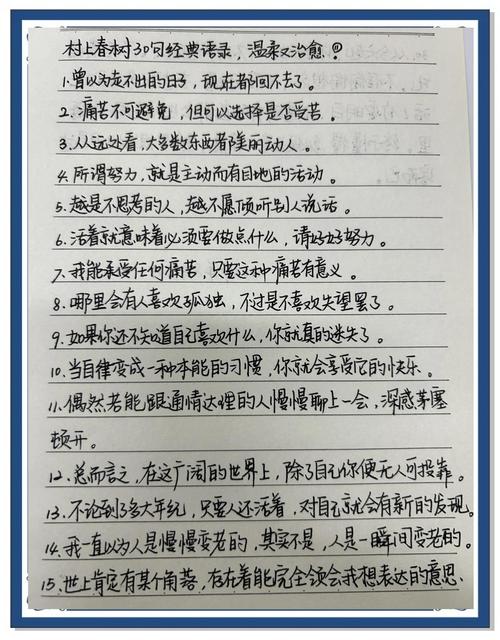 村上春树30句经典语录,温柔又治愈!!
1.曾以为走不出的日子,现在都回不去了。
2.痛苦不可避免,但可以选择是否受苦。
3.从远处看,大多数东西都美丽动人。
4.所谓努力,就是主动而有目地的活动。
5.越是不思考的人,越不愿倾听别人说话。
6.活着就意味着必须要做点什么,请好好努力。
7.我能承受任何痛苦,只要这种痛苦有意义。
8.哪里会有人喜欢孤独,不过是不喜欢失望罢了。
9.如果你还不知道自己喜欢什么,你就真的迷失了。
10.当自律变成一种本能的习惯,你就会享受它的快乐。
11.偶然若能跟通情达理的人慢慢聊上一会,深感茅塞
顿开。
12.总而言之,在这广阔的世界上,除了自己你便无人可投靠。
13.不论到了多大年纪,只要人还活着,对自己就会有新的发现。
14.我一直以为人是慢慢变老的,其实不是,人是一瞬间变老的。
15.世上肯定有某个角落,存在着能完全领会我想表达的意思.